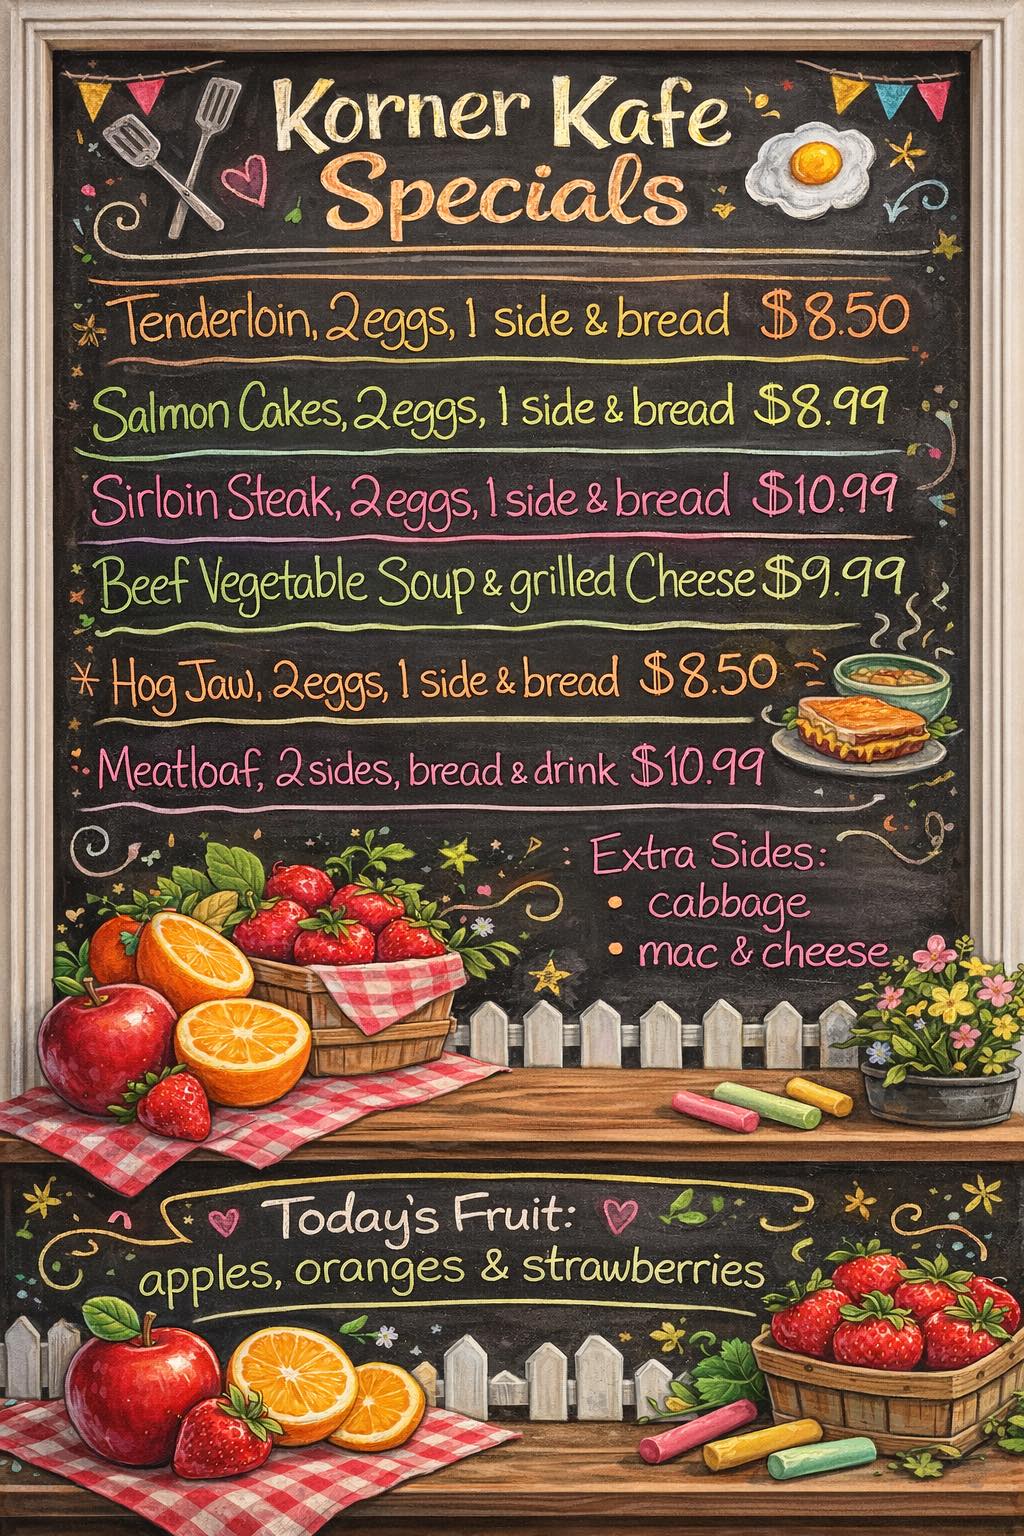 Korner Kafe
Specials
Tenderloin, 2 eggs, 1 side & bread $8.50
Salmon Cakes, 2 eggs, 1 side & bread $8.99
Sirloin Steak, 2 eggs, 1 side & bread $10.99
Beef Vegetable Soup & grilled Cheese $9.99
* Hog Jaw, 2 eggs, 1 side & bread $8.50
Meatloaf, 2 sides, bread & drink $10.99
Extra Sides:
• cabbage
• mac & cheese
Today's Fruit:
apples, oranges & strawberries